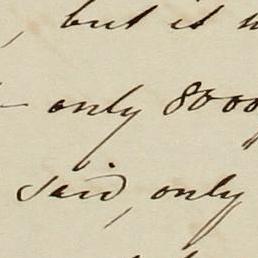 , but it
- only 8000
said, only